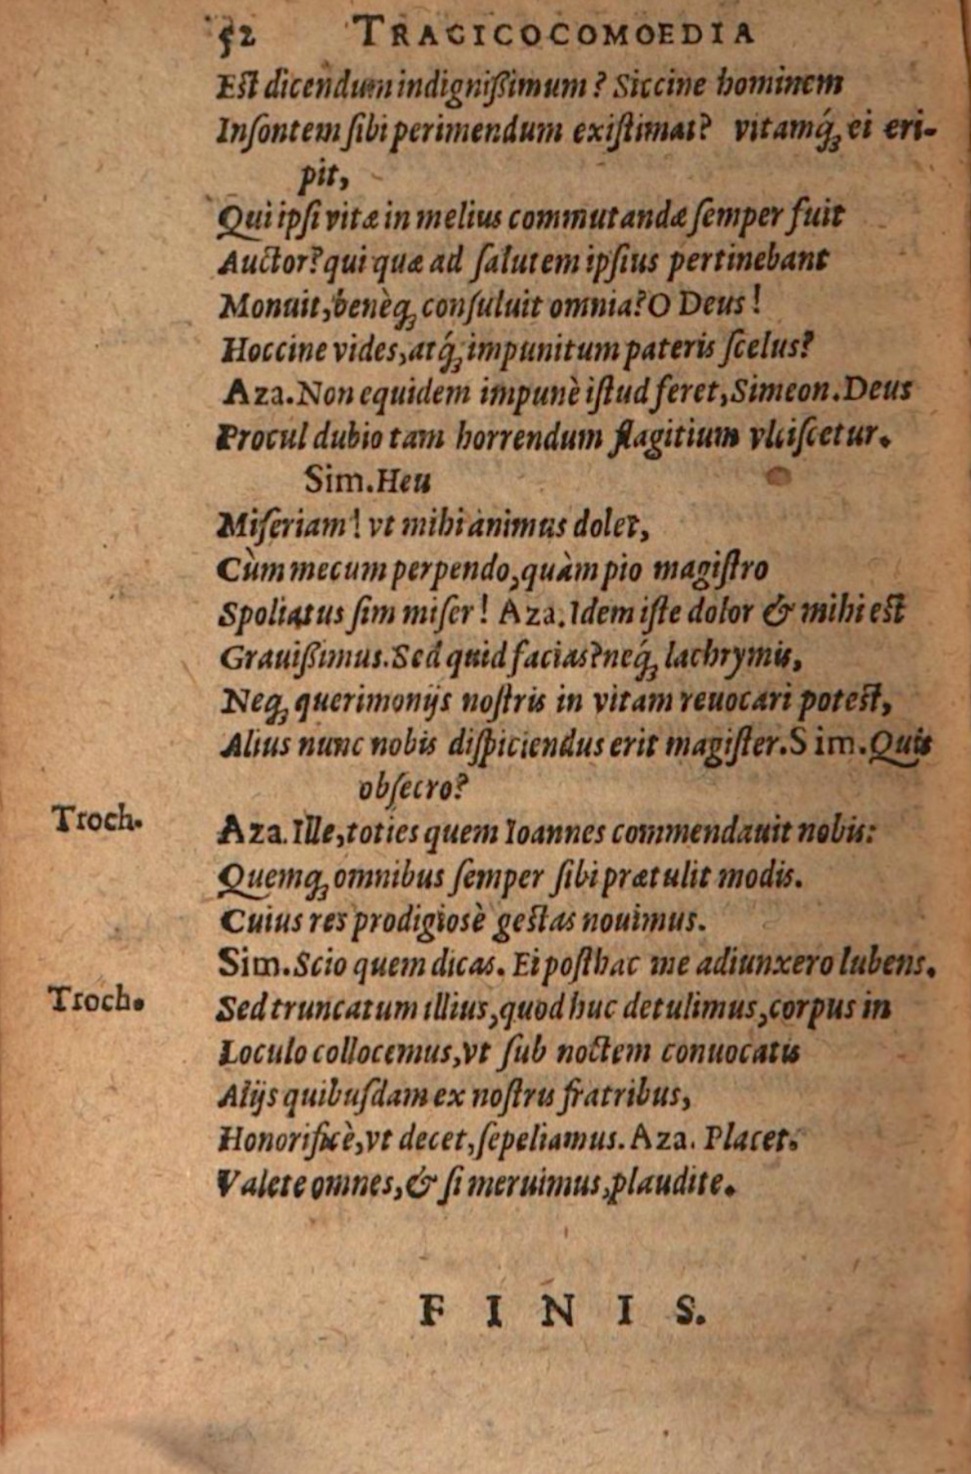 52 TRAGICOCOMOEDIA
Est dicendum indignißimum? Siccine hominem
Inſontem ſibi perimendum exiſtimat? vitamq́; ei eri-
pit,
Qui ipſi vitæ in melius commutandæ ſemper fuit
Auctor? qui quæ ad ſalutem ipſius pertinebant
Monuit, benèq; conſuluit omnia? O Deus!
Hoccine vides, atq́; impunitum pateris ſcelus?
Aza. Non equidem impunè iſtud feret, Simeon. Deus
Procul dubio tam horrendum flagitium vlciſcetur.
Sim. Heu
Miſeriam! vt mihi animus dolet,
Cùm mecum perpendo, quàm pio magiſtro
Spoliatus ſim miſer! Aza. Idem iſte dolor & mihi est
Grauißimus. Sed quid facias? neq́; lachrymis,
Neq; querimonijs noſtris in vitam reuocari potest,
Alius nunc nobis diſpiciendus erit magiſter. Sim. Quis
obſecro?
Troch. Aza. Ille, toties quem Ioannes commendauit nobis:
Quemq; omnibus ſemper ſibi prætulit modis.
Cuius res prodigiosè gestas nouimus.
Sim. Scio quem dicas. Ei poſthac me adiunxero lubens.
Troch. Sed truncatum illius, quod huc detulimus, corpus in
Loculo collocemus, vt ſub noctem conuocatis
Alijs quibuſdam ex noſtris fratribus,
Honorificè, vt decet, ſepeliamus. Aza. Placet.
Valete omnes, & ſi meruimus, plaudite.
FINIS.